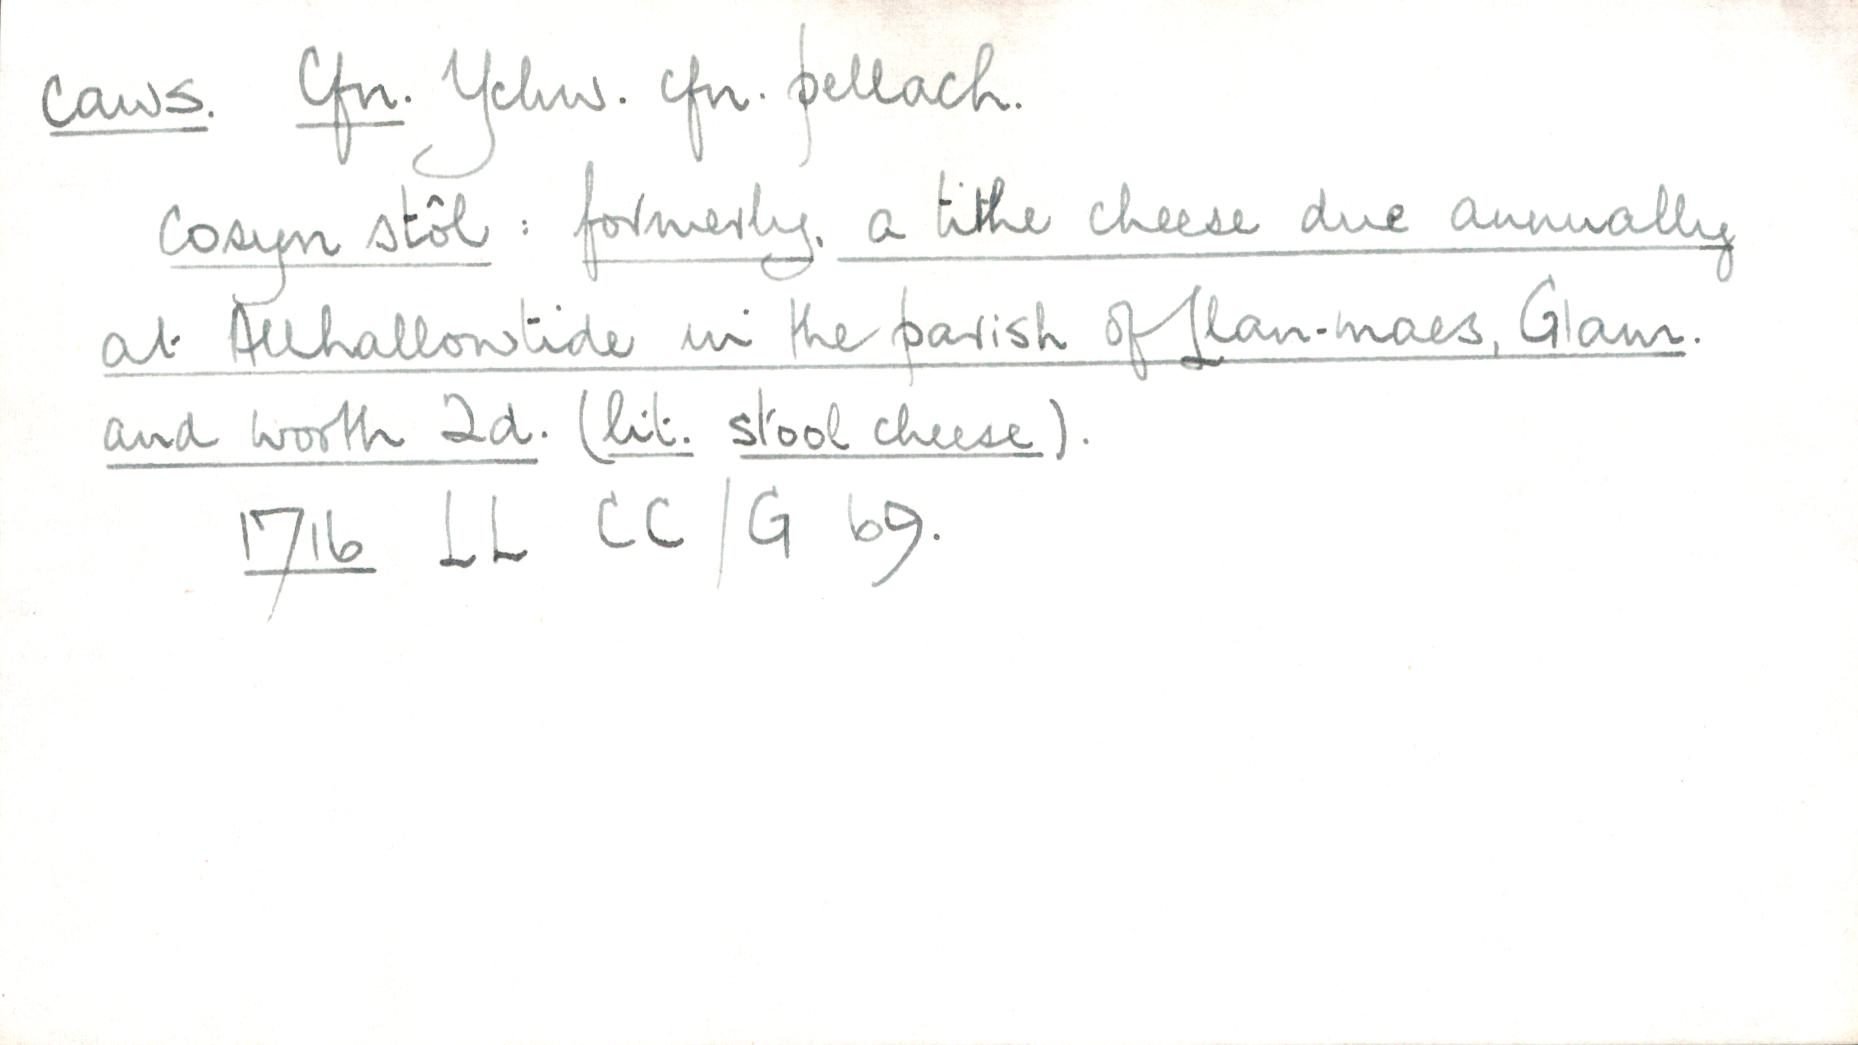 caws. Cfn. Ychw. cfn. pellach.
cosyn stôl : formerly, a tithe cheese due annually
at Allhallowtide in the parish of Llan-maes, Glam.
and worth 2d. (lit. stool cheese).
1716 LL CC/G 69.